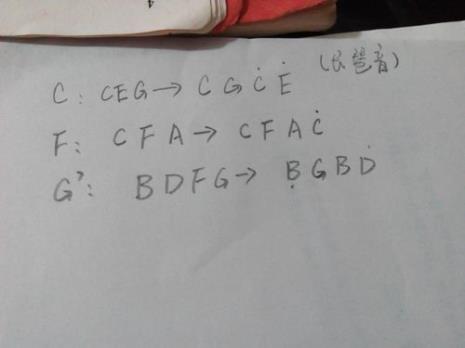 C: CEG→ C G Ċ Ė (长琶音)
F: C F A → C F A Ċ
G⁷: B D F G → Ḅ G B Ḋ